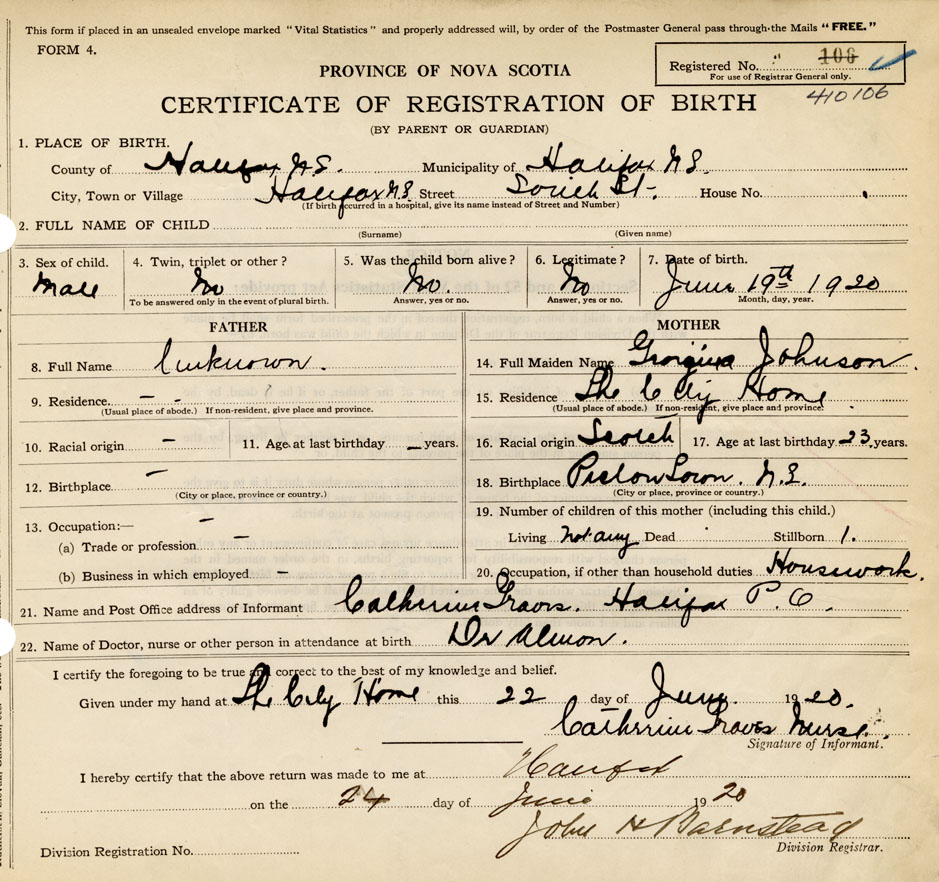 This form if placed in an unsealed envelope marked "Vital Statistics" and properly addressed will, by order of the Postmaster General pass through the Mails "FREE."
FORM 4.
Registered No. 106
For use of Registrar General only.
410106
PROVINCE OF NOVA SCOTIA
CERTIFICATE OF REGISTRATION OF BIRTH
(BY PARENT OR GUARDIAN)
1. PLACE OF BIRTH.
County of Halifax N.S. Municipality of Halifax N.S.
City, Town or Village Halifax N.S. Street South St. House No.
(If birth occurred in a hospital, give its name instead of Street and Number)
2. FULL NAME OF CHILD
(Surname) (Given name)
3. Sex of child. 4. Twin, triplet or other? 5. Was the child born alive? 6. Legitimate? 7. Date of birth.
Male No No. No June 19th 1920
To be answered only in the event of plural birth. Answer, yes or no. Answer, yes or no. Month, day, year.
FATHER
8. Full Name Unknown.
9. Residence - -
(Usual place of abode.) If non-resident, give place and province.
10. Racial origin - 11. Age at last birthday - years.
12. Birthplace -
(City or place, province or country.)
13. Occupation:— -
(a) Trade or profession -
(b) Business in which employed -
MOTHER
14. Full Maiden Name Georgina Johnson.
15. Residence The City Home
(Usual place of abode.) If non-resident, give place and province.
16. Racial origin Scotch 17. Age at last birthday 23 years.
18. Birthplace N.S.
(City or place, province or country.)
19. Number of children of this mother (including this child.)
Living not any Dead Stillborn 1.
20. Occupation, if other than household duties Housework.
21. Name and Post Office address of Informant Catherine Graves. Halifax P.O.
22. Name of Doctor, nurse or other person in attendance at birth Dr Almon.
I certify the foregoing to be true and correct to the best of my knowledge and belief.
Given under my hand at The City Home this 22 day of June 1920.
Catherine Graves Nurse.
Signature of Informant.
I hereby certify that the above return was made to me at Halifax
on the 24 day of June 1920
John H Barnstead
Division Registrar.
Division Registration No.